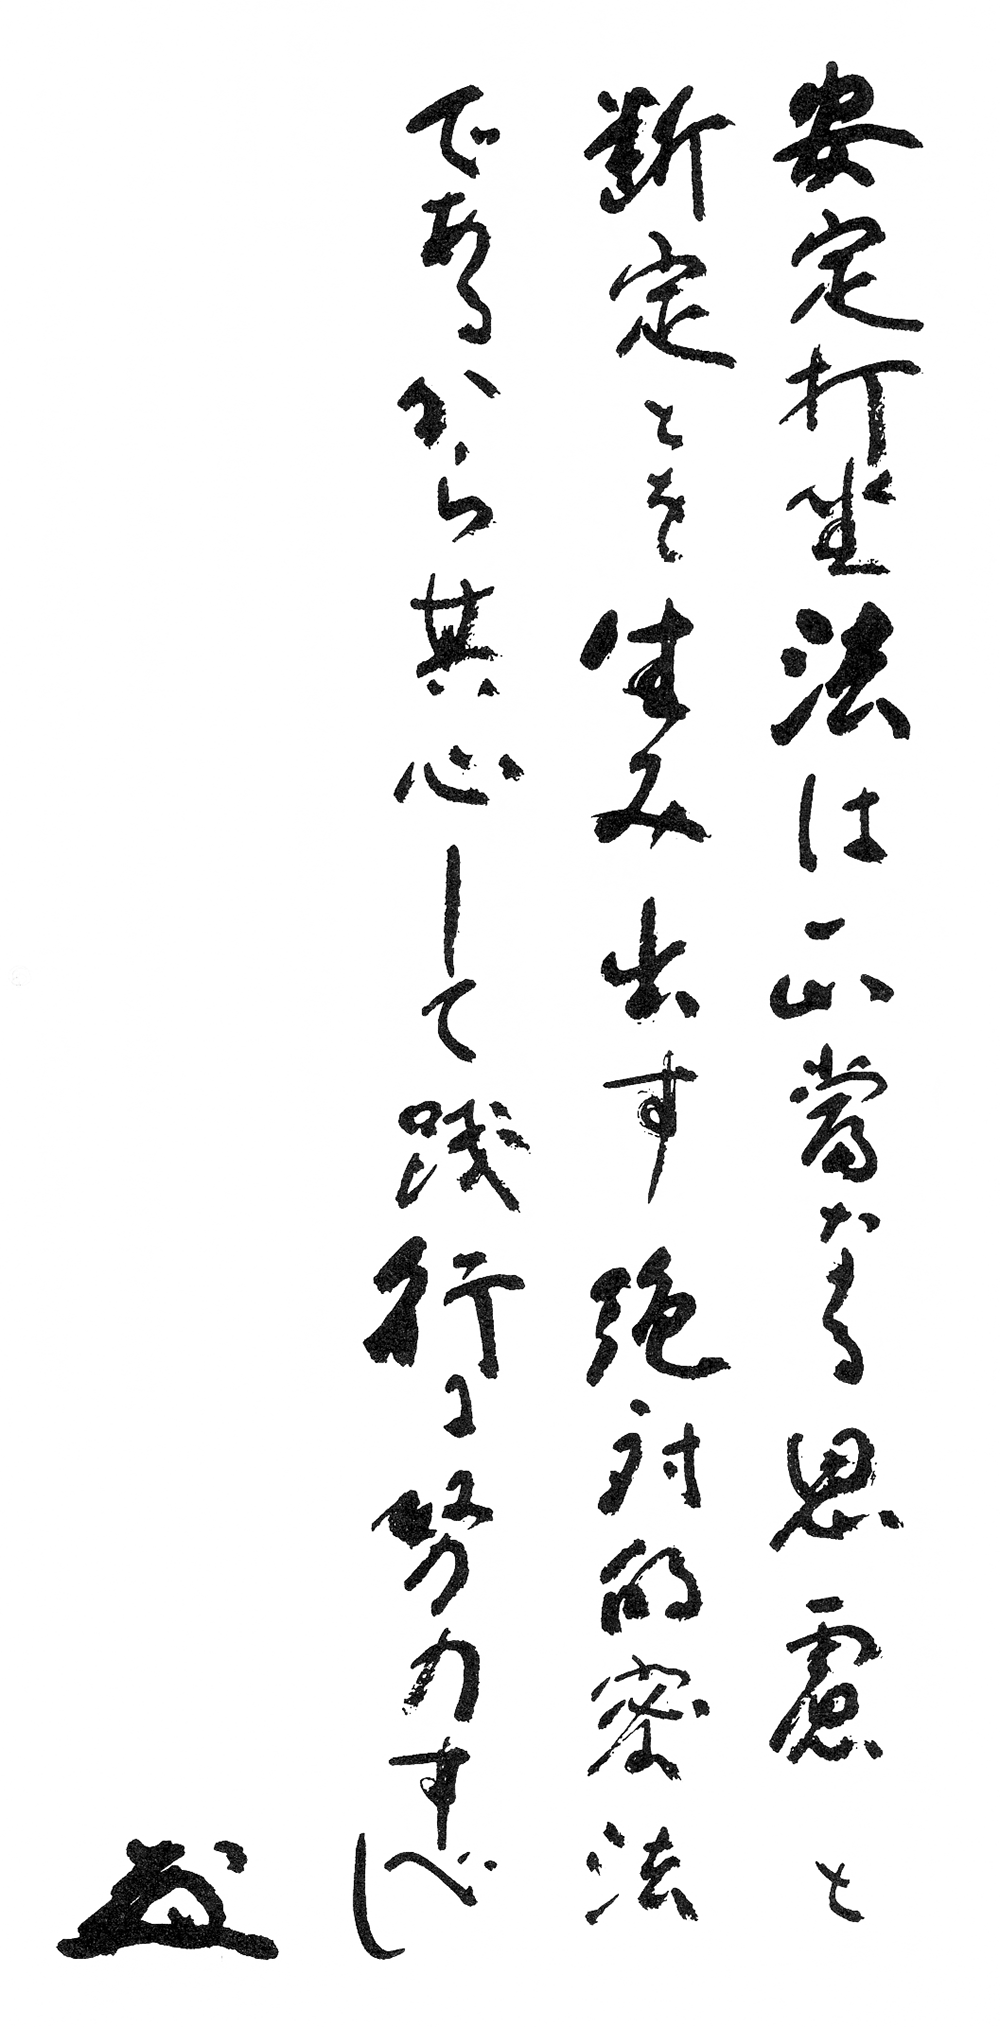 安定打坐法は正當なる思慮と
断定とを生み出す絶対的密法
であるから其心して践行に努力すべし